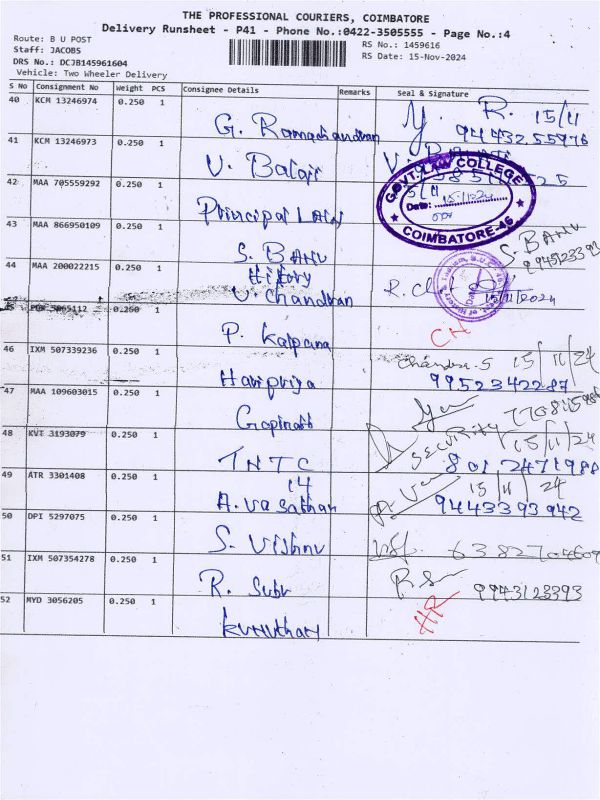 THE PROFESSIONAL COURIERS, COIMBATORE
Delivery Runsheet - P41 - Phone No.:0422-3505555 - Page No.:4
Route: B U POST
RS No.: 1459616
Staff: JACOBS
RS Date: 15-Nov-2024
DRS No.: DCJB145961604
Vehicle: Two Wheeler Delivery
S No Consignment No Weight PCS Consignee Details Remarks Seal & Signature
40 KCM 13246974 0.250 1 G. Ramachandran R. 15/11
94432 55976
41 KCM 13246973 0.250 1 V. Balaji
42 MAA 705559292 0.250 1 Principal LAW
GOVT. LAW COLLEGE
Date: 15-11-2024
COIMBATORE-46
43 MAA 866950109 0.250 1 S. BANU S. BANU
History
44 MAA 200022215 0.250 1 V. Chandran R. 15/11/2024
3065112 0.250 1 P. Kalpana
46 IXM 507339236 0.250 1 Haripriya Chandra-S 15/11/24
9952342287
47 MAA 109603015 0.250 1 Gopinath
48 KVT 3193079 0.250 1 TNTC SECURITY 15/11/24
14
49 ATR 3301408 0.250 1 A. Vasathan 15/11/24
9443393942
50 DPI 5297075 0.250 1 S. Vishnu
51 IXM 507354278 0.250 1 R. Subu 9943123393
52 MYD 3056205 0.250 1